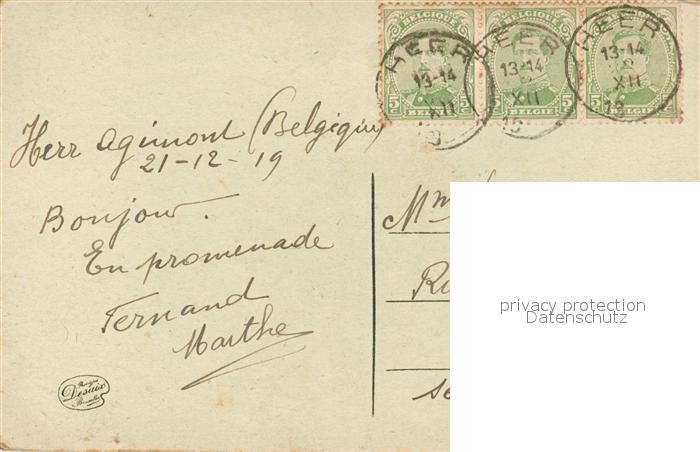 BELGIQUE BELGIQUE BELGIQUE
HEER HEER HEER
13-14 13-14 13-14
XII XII XII
19
5 5 5 5 5 5
BELGIE BELGIE BELGIE
Herr Agimont (Belgique)
21-12-19
Bonjour.
En promenade
Fernand
Marthe
Desaix
Mme
privacy protection
Datenschutz